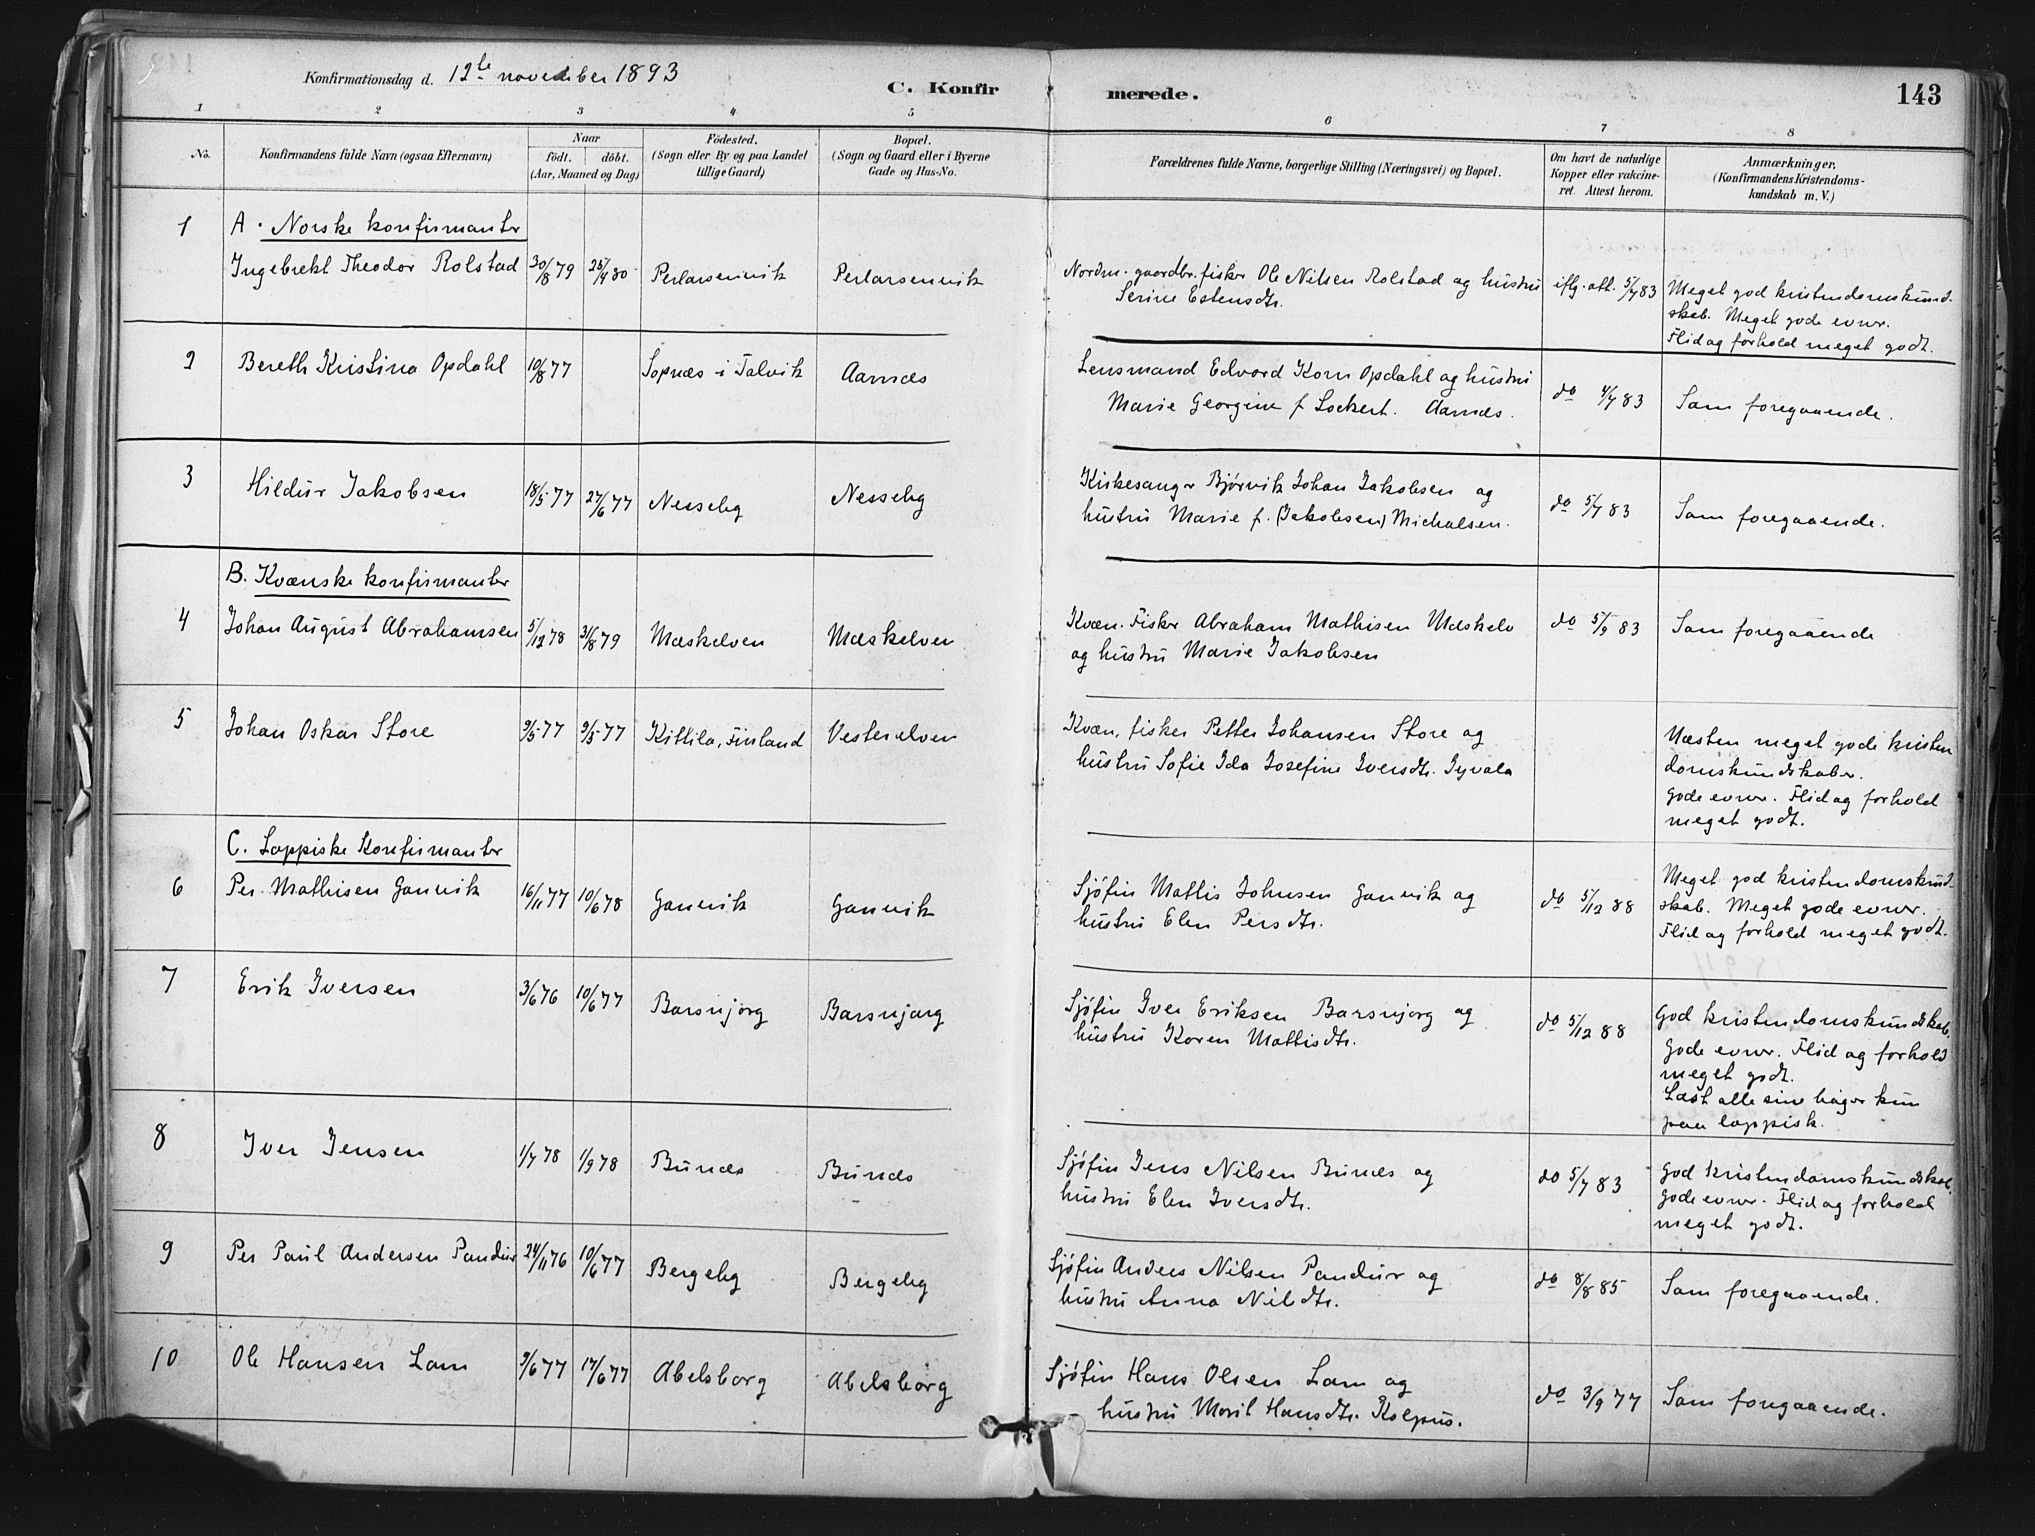 143
Konfirmationsdag d. 12te november 1893
C. Konfirmerede.
1 2 3 4 5 6 7 8
No.
Konfirmandens fulde Navn (ogsaa Efternavn)
Naar
födt. döbt.
(Aar, Maaned og Dag)
Födested.
(Sogn eller By og paa Landet
tillige Gaard)
Bopæl.
(Sogn og Gaard eller i Byerne
Gade og Hus-No.
Forældrenes fulde Navne, borgerlige Stilling (Næringsvei) og Bopæl.
Om havt de naturlige
Kopper eller vakcine-
ret. Attest herom.
Anmærkninger.
(Konfirmandens Kristendoms-
kundskab m. V.)
A. Norske konfirmanter
1 Ingebrekt Theodor Rolstad 30/8 79 25/4 80 Perlarsenvik Perlarsenvik
Nordm. gaardbr. fisker Ole Nilsen Rolstad og hustru
Serine Estensdtr.
iflg. att. 5/7 83
Meget god kristendomskund-
skab. Meget gode evner.
Flid og forhold meget godt.
2 Bereth Kristina Opdahl 10/8 77 Sopnæs i Talvik Aarnæs
Lensmand Edvard Korn Opdahl og hustru
Marie Georgine f. Lockert. Aarnæs.
do 4/7 83
Som foregaaende.
3 Hildur Jakobsen 18/5 77 27/6 77 Nesseby Nesseby
Kirkesanger Bjørvik Johan Jakobsen og
hustru Marie f. (Jakobsen) Michalsen.
do 5/7 83
Som foregaaende.
B. Kvænske konfirmanter
4 Johan August Abrahamsen 5/12 78 31/8 79 Mæskelven Mæskelven
Kvæn. Fisker Abraham Mathisen Mæskelv
og hustru Marie Jakobsen
do 5/9 83
Som foregaaende
5 Johan Oskar Store 9/5 77 9/5 77 Kittila, Finland Vesterelven
Kvæn, fisker Petter Johansen Store og
hustru Sofie Ida Josefine Iversdtr. Jyvala
Næsten meget gode kristen
domskundskaber.
Gode evner. Flid og forhold
meget godt.
C. Lappiske Konfirmanter
6 Per Mathisen Ganvik 16/11 77 10/6 78 Ganvik Ganvik
Sjøfin Mattis Johnsen Ganvik og
hustru Elen Persdtr.
do 5/12 88
Meget god kristendomskund-
skab. Meget gode evner.
Flid og forhold meget godt.
7 Erik Iversen 3/6 76 10/6 77 Barsnjorg Barsnjarg
Sjøfin Iver Eriksen Barsnjorg og
hustru Karen Mattisdtr.
do 5/12 88
God kristendomskundskab.
Gode evner. Flid og forhold
meget godt.
Læst alle sine bøger kun
paa lappisk.
8 Iver Jensen 1/7 78 1/9 78 Bunæs Bunæs
Sjøfin Jens Nilsen Bunæs og
hustru Elen Iversdtr.
do 5/7 83
God kristendomskundskab.
Gode evner. Flid og forhold
meget godt.
9 Per Paul Andersen Pandur 24/11 76 10/6 77 Bergeby Bergeby
Sjøfin Anders Nilsen Pandur og
hustru Anna Nilsdtr.
do 8/8 85
Som foregaaende.
10 Ole Hansen Lam 9/6 77 17/6 77 Abelsborg Abelsborg
Sjøfin Hans Olsen Lam og
hustru Marit Hansdtr. Kolpus.
do 3/9 77
Som foregaaende.